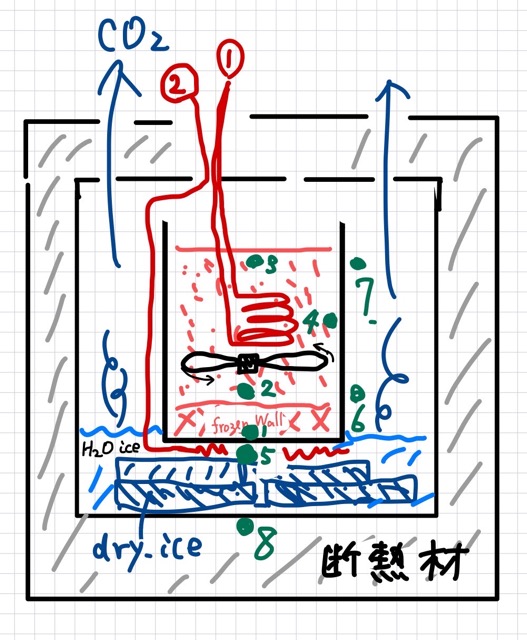 CO2
①
②
3
7
4
2
6
frozen Wall
1
H2O ice
5
dry-ice
8
断熱材